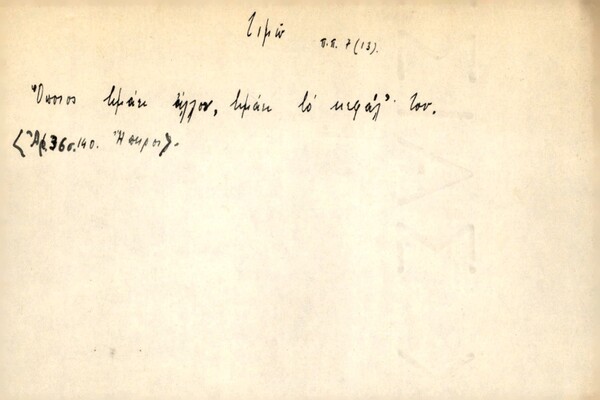 τιμῶ
π.π. 7 (13).
Ὅποιος τιμάει ἄλλον, τιμάει τό κεφάλ' του.
<Ἀρ. 36 σ. 140. Ἤπειρος>.